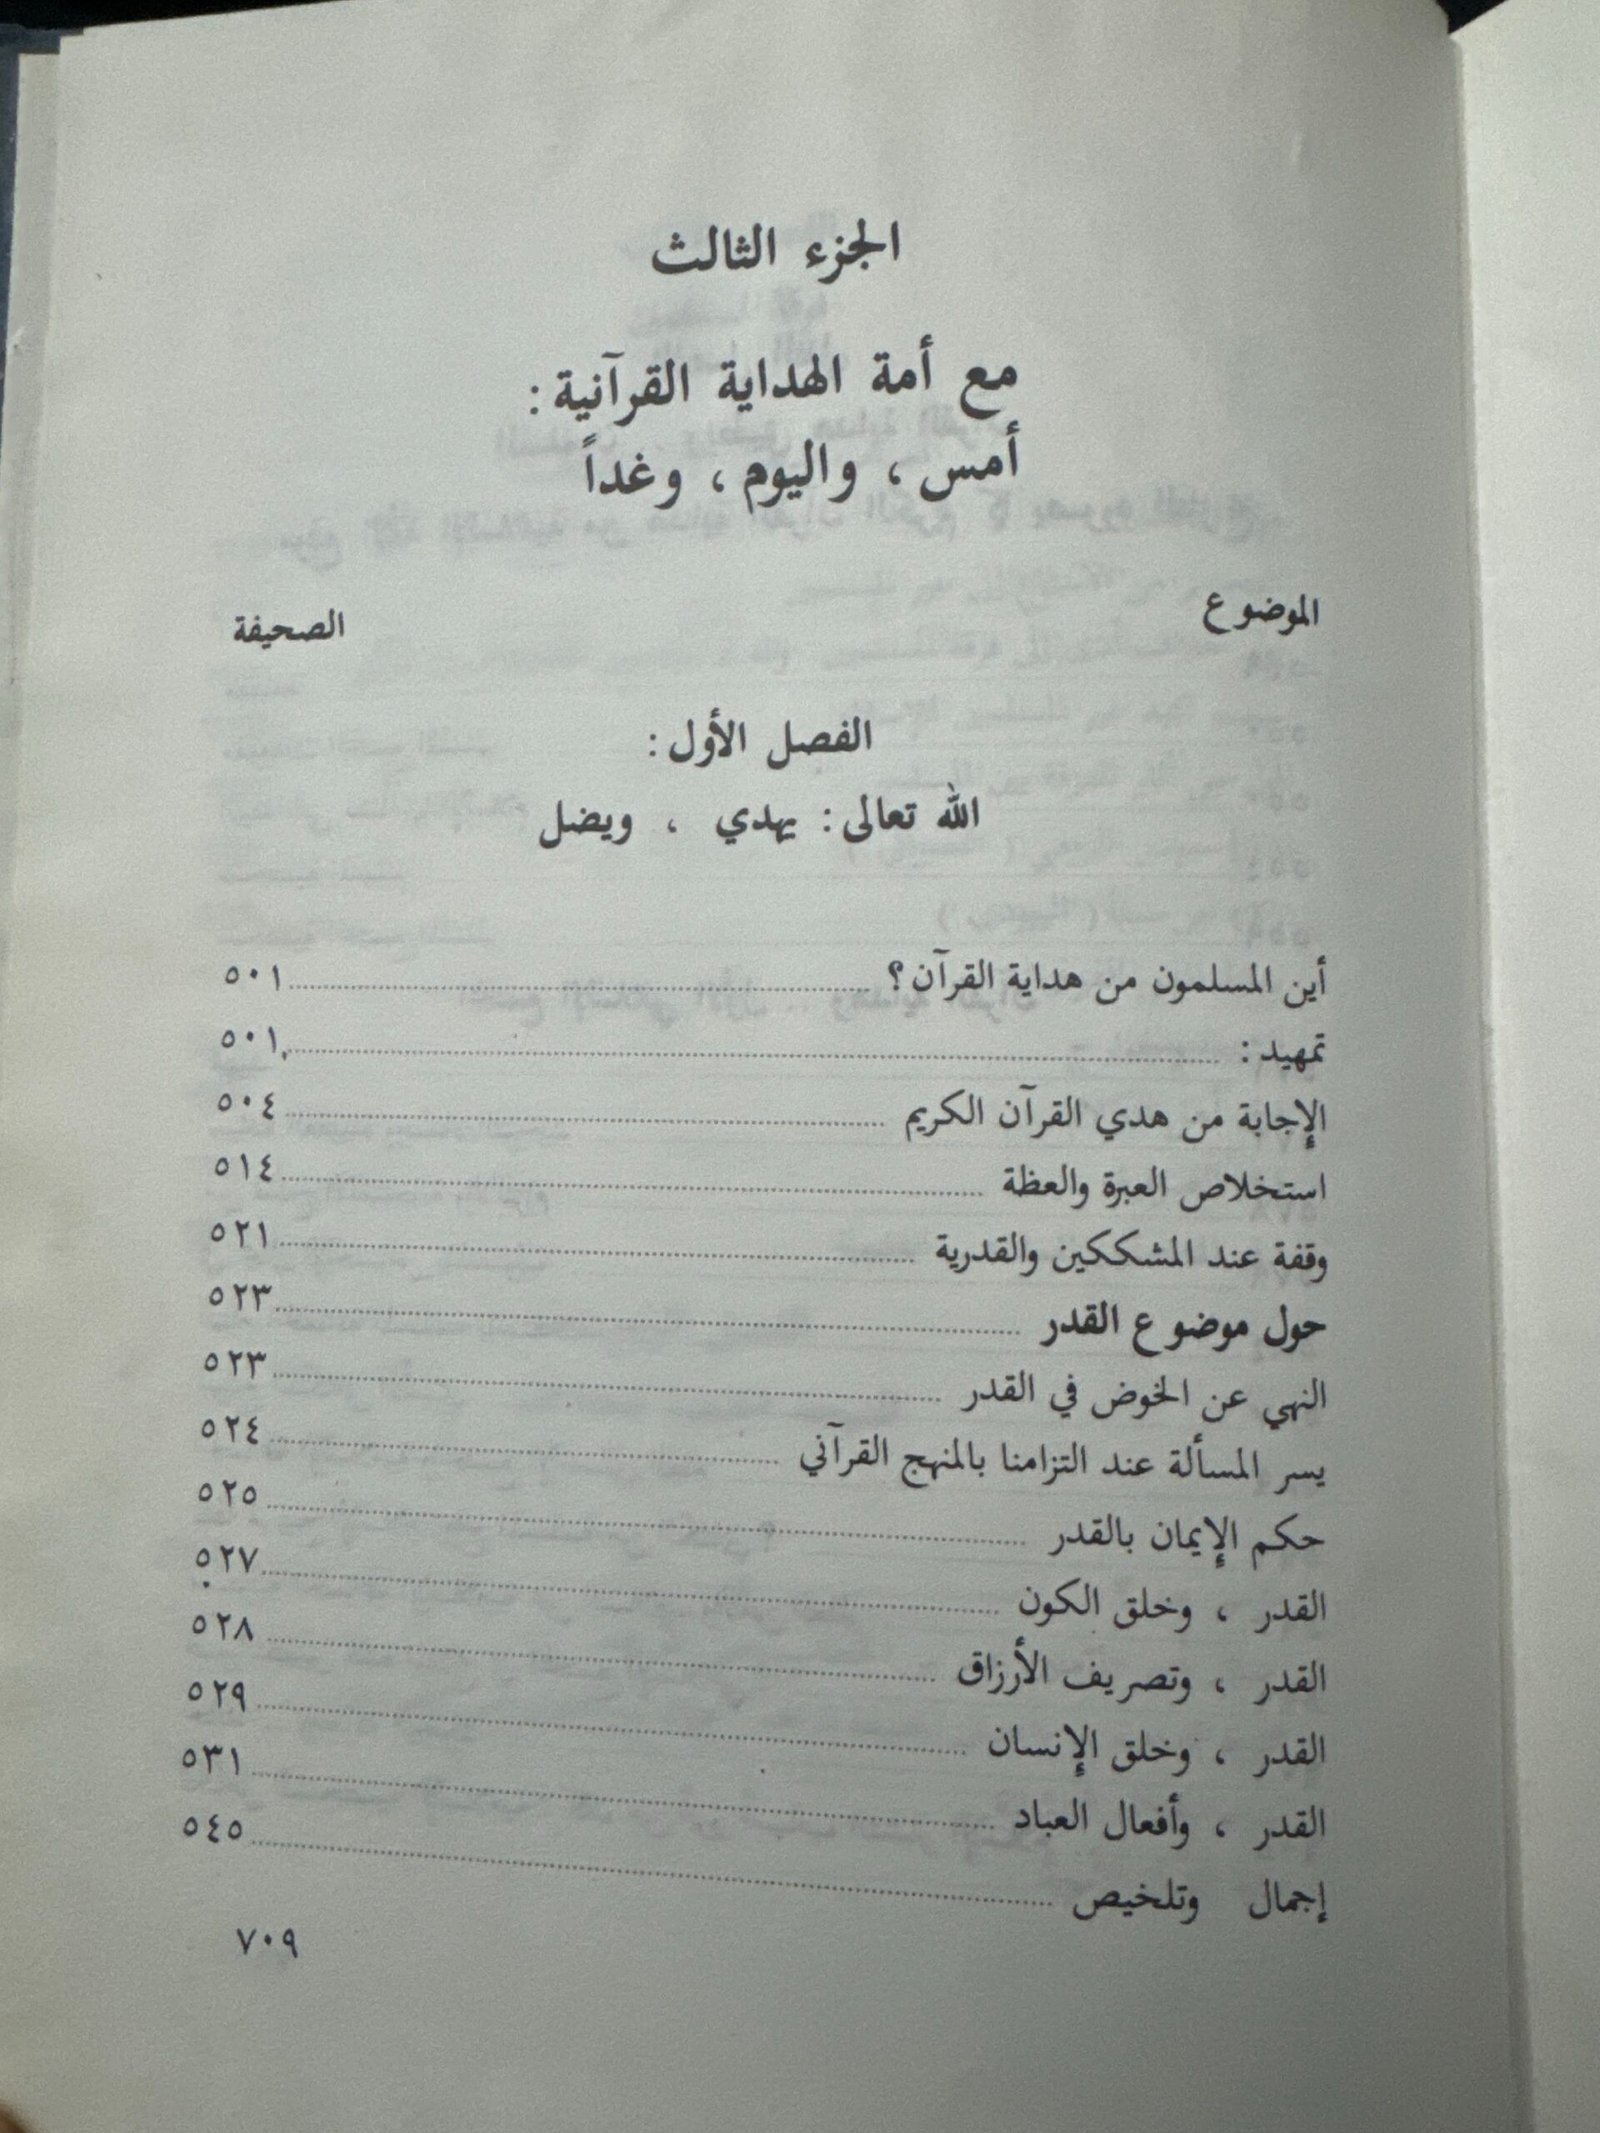 الجزء الثالث
مع أمة الهداية القرآنية:
أمس ، واليوم ، وغداً
الموضوع الصحيفة
الفصل الأول:
الله تعالى: يهدي ، ويضل
أين المسلمون من هداية القرآن؟ ٥٠١
تمهيد: ٥٠١
الإجابة من هدي القرآن الكريم ٥٠٤
استخلاص العبرة والعظة ٥١٤
وقفة عند المشككين والقدرية ٥٢١
حول موضوع القدر ٥٢٣
النهي عن الخوض في القدر ٥٢٣
يسر المسألة عند التزامنا بالمنهج القرآني ٥٢٤
حكم الإيمان بالقدر ٥٢٥
القدر ، وخلق الكون ٥٢٧
القدر ، وتصريف الأرزاق ٥٢٨
القدر ، وخلق الإنسان ٥٢٩
القدر ، وأفعال العباد ٥٣١
إجمال وتلخيص ٥٤٥
٧٠٩